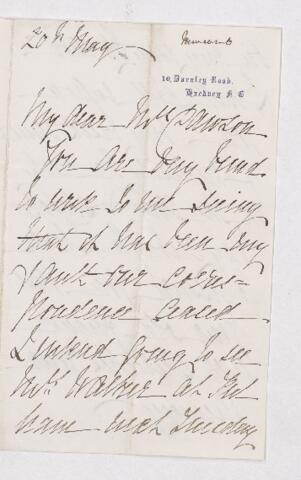 20th May
10, Darnley Road,
Hackney N. E
My dear Mrs Dawson
You are very kind
to write to me seeing
that it has been my
fault our corres-
pondence ceased
I intend going to see
Mrs Walker at Ful
ham next Tuesday